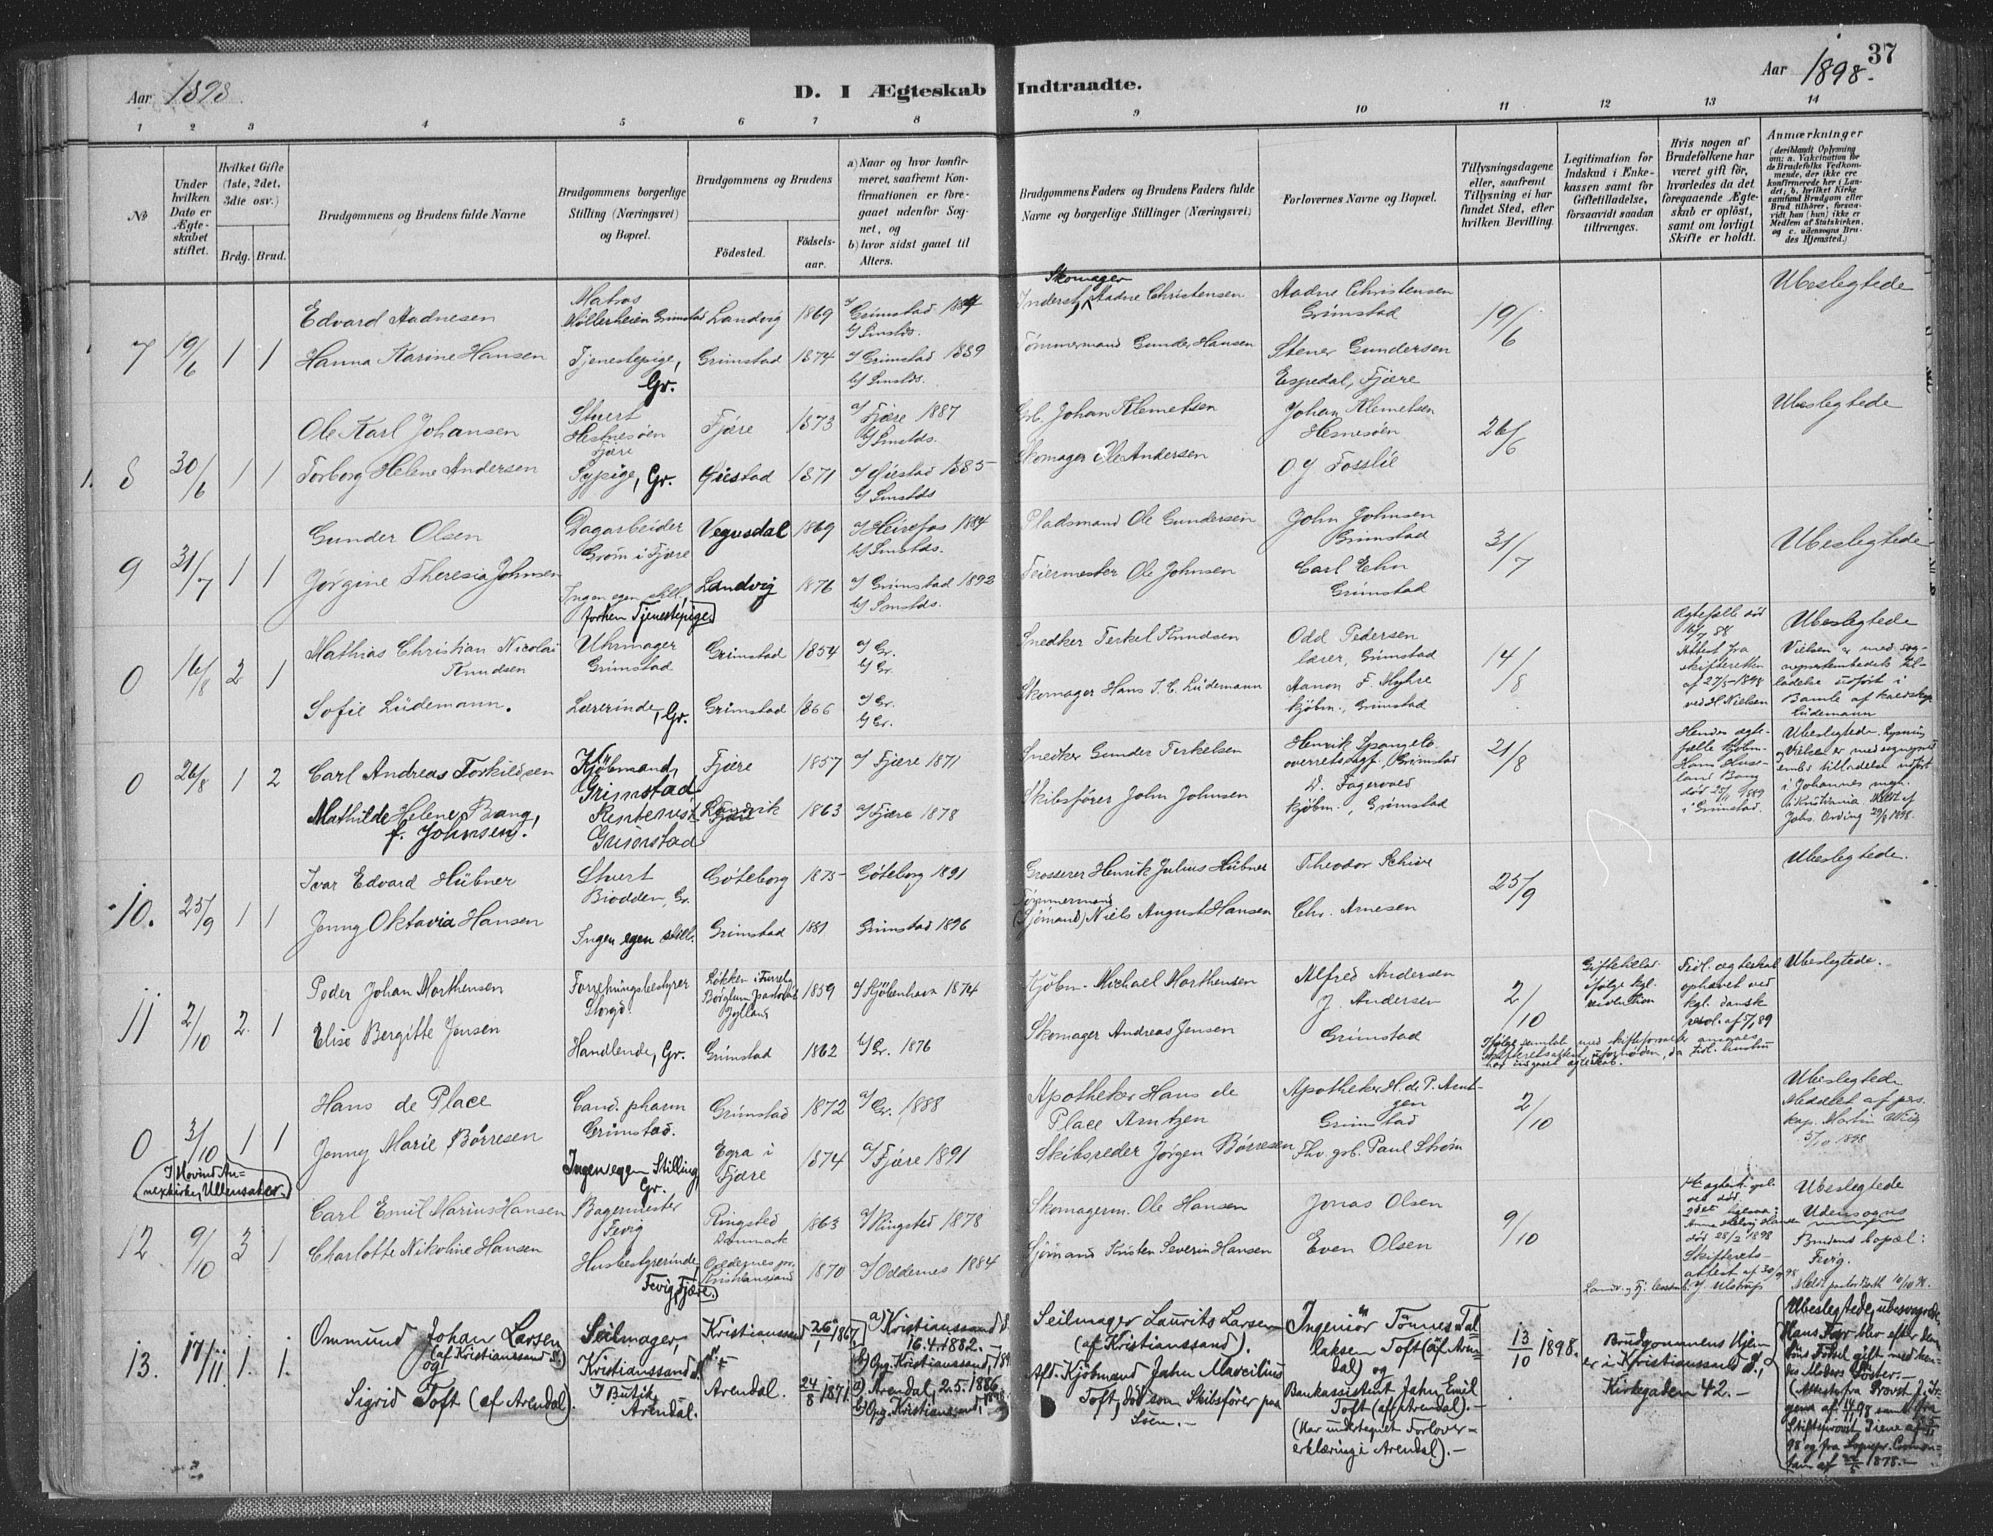 Aar 1898.
D. I Ægteskab Indtraadte.
Aar 1898.
37
1 2 3 4 5 6 7 8 9 10 11 12 13 14
№
Under hvilken Dato er Ægteskabet stiftet.
Hvilket Gifte (1ste, 2det, 3die osv.)
Brdg. Brud.
Brudgommens og Brudens fulde Navne
Brudgommens borgerlige Stilling (Næringsvei) og Bopæl.
Brudgommens og Brudens
Fødested.
Fødselsaar.
a) Naar og hvor konfirmeret, saafremt Konfirmationen er foregaaet udenfor Sognet, og
b) hvor sidst gaaet til Alters.
Brudgommens Faders og Brudens Faders fulde Navne og borgerlige Stillinger (Næringsvei)
Forlovernes Navne og Bopæl.
Tillysningsdagene eller, saafremt Tillysning ei har fundet Sted, efter hvilken Bevilling.
Legitimation for Indskud i Enkekassen samt for Giftetilladelse, forsaavidt saadan tiltrænges.
Hvis nogen af Brudefolkene har været gift før, hvorledes da det foregaaende Ægteskab er opløst, samt om lovligt Skifte er holdt.
Anmærkninger (deriblandt Oplysning om: a. Vakcination for de Brudefolks Vedkommende, der ikke ere konfirmerede her i Landet, b. hvilket Kirkesamfund Brudgom eller Brud tilhører, forsaavidt han (hun) ikke er Medlem af Statskirken, og c. udensogns Brudes Hjemsted.)
7 19/6 1 1
Edvard Aadnesen
Matros Møllerheien Grimstad
Landvig 1869
a/ Grimstad 1884
b/ Smstds.
Skomager
Inderst Aadne Christensen
Aadne Christensen
Grimstad
19/6
Ubeslegtede
Hanna Karine Hansen
Tjenestepige, Gr.
Grimstad 1874
a/ Grimstad 1889
b/ Smstds.
Tømmermand Gunder Hansen
Stener Gundersen
Espedal, Fjære
8 30/6 1 1
Ole Karl Johansen
Stuert
Hesnesøen
Fjære
Fjære 1873
a/ Fjære 1887
b/ Smstds.
Grb. Johan Klemetsen
Johan Klemetsen
Hesnesøen
26/6
Ubeslegtede
Torborg Helene Andersen
Sypige, Gr.
Øiestad 1871
a/ Øiestad 1885
b/ Smstds
Skomager Ole Andersen
O J Fosslie
9 31/7 1 1
Gunder Olsen
Dagarbeider
Grøm i Fjære
Vegusdal 1869
a/ Heirefos 1884
b/ Smstds.
Pladsmand Ole Gundersen
John Johnsen
Grimstad
31/7
Ubeslegtede
Jørgine Theresia Johnsen
Ingen egen still.,
forhen Tjenestepige.
Landvig 1876
a/ Grimstad 1892
b/ Smstds.
Feiermester Ole Johnsen
Carl Ehn
Grimstad
0 16/8 2 1
Mathias Christian Nicolai
Knudsen
Uhrmager
Grimstad
Grimstad 1854
a/ Gr.
b/ Gr.
Snedker Terkel Knudsen
Odd Pedersen
lærer, Grimstad
14/8
Ægtefælle død
16/7 88
Attest fra
skifteretten
af 27/5-1898
ved H. Nielsen
Ubeslegtede
Vielsen er med sog-
nepræstembedets til-
ladelse udført i
Bamle af
Lüdemann
Sofie Lüdemann.
Lærerinde, Gr.
Grimstad 1866
a/ Gr.
b/ Gr.
Skomager Hans J. C. Lüdemann
Aanon F. Myhre
kjøbm., Grimstad
0 26/8 1 2
Carl Andreas Torkildsen
Kjøbmand,
Grimstad
Fjære 1857
a/ Fjære 1871
Snedker Gunder Terkelsen
Henrik Spangelo
overretssagf. Grimstad
21/8
Hendes ægte-
fælle kjøbm-
Hans
Bang
død
i Grimstad.
Ubeslegtede.
Mathilde Helene Bang,
f. Johnsen.
Rentenist
Grimstad
Landvik 1863
a/ Fjære 1878
Skibsfører John Johnsen
D. Fagervold
kjøbm., Grimstad
10. 25/9 1 1
Ivar Edvard Hübner
Stuert
Biodden, Gr.
Göteborg 1875
Göteborg 1891
Grosserer Henrik Julius Hübner
Theodor Schive
25/9
Ubeslegtede.
Jenny Oktavia Hansen
Ingen egen still.
Grimstad 1881
Grimstad 1896
Tømmermand
(Sjømand) Niels August Hansen
Chr. Arnesen
11 2/10 2. 1
Peder Johan Morthensen
Forretningsbestyrer
Storgd.
Løkken i Furreby
Børglum
Jylland
1859
a/ Kjøbenhavn 1874
Kjøbm. Michael Morthensen
Alfred Andersen
J. Andersen
Grimstad
2/10
ifølge kgl.
resolution
Tidl. ægteskab
ophævet ved
kgl. dansk
resol. af 5/1 89
Ubeslegtede.
Elise Bergitte Jensen
Handlende, Gr.
Grimstad 1862
b/ Gr. 1876
Skomager Andreas Jensen
0 3/10 1 1
I Hovind An-
nexkirke, Ullensaker.
Hans de Place
Cand. pharm
Grimstad.
Grimstad 1872
a/ Gr. 1888
Apotheker Hans de
Place Arntzen
Apotheker H. de P. Arnt-
zen
Grimstad
2/10
Ubeslegtede
Meddelt af pers.
kap. Martin
5/10 1898
Jenny Marie Børresen
Ingen egen Stilling,
Gr.
Egra i
Fjære
1874
a/ Fjære 1891
Skibsreder Jørgen Børresen
Thv. grb. Paul Strøm
12 9/10 3 1
Carl Emil Marius Hansen
Bagermester
Fevig
Ringsted
Danmark
1863
a/ Ringsted 1878
Skomagerm. Ole Hansen
Jonas Olsen
9/10
død 28/2 1898
Skifterets-
attest af 30/9 98
Ubeslegtede
Udensogns
Brudens bopæl:
Fevig.
Charlotte Nikoline Hansen
Husbestyrerinde,
Fevig, Fjære.
Oddernes pr.
Kristianssand
1870
a/ Oddernes 1884
Sjømand Kristen Severin Hansen
Even Olsen
13. 17/11 1. 1.
Ommund Johan Larsen
(af Kristianssand S.)
og
Seilmager,
Kristianssand S.
Kristianssand S.
26/1 1867
a) Kristianssand S.
16.4.1882.
Seilmager Laurits Larsen
(af Kristianssand).
Ingeniør Tönnes Tal-
laksen Toft (af Aren-
dal) og
13/10 1898.
Brudgommens Hjem
er i Kristianssand S.,
Kirkegaden 42.-
Ubeslegtede, ubesvogrede.
Hans Far blev efter den-
nes Fødsel gift med hen-
des Moders Søster.-
(Attest fra Provst J.
Sigrid Toft (af Arendal).
I Butik,
Arendal.
Arendal.
24/8 1871
a) Arendal, 2.5.1886
b) Opg. Kristianssand, 1898
Afd. Kjøbmand Jahn Marcilius
Toft, död som Skibsförer paa
Söen.-
Bankassistent Jahn Emil
Toft (af Arendal).-
(Har undertegnet Forlover-
erklæring i Arendal).-